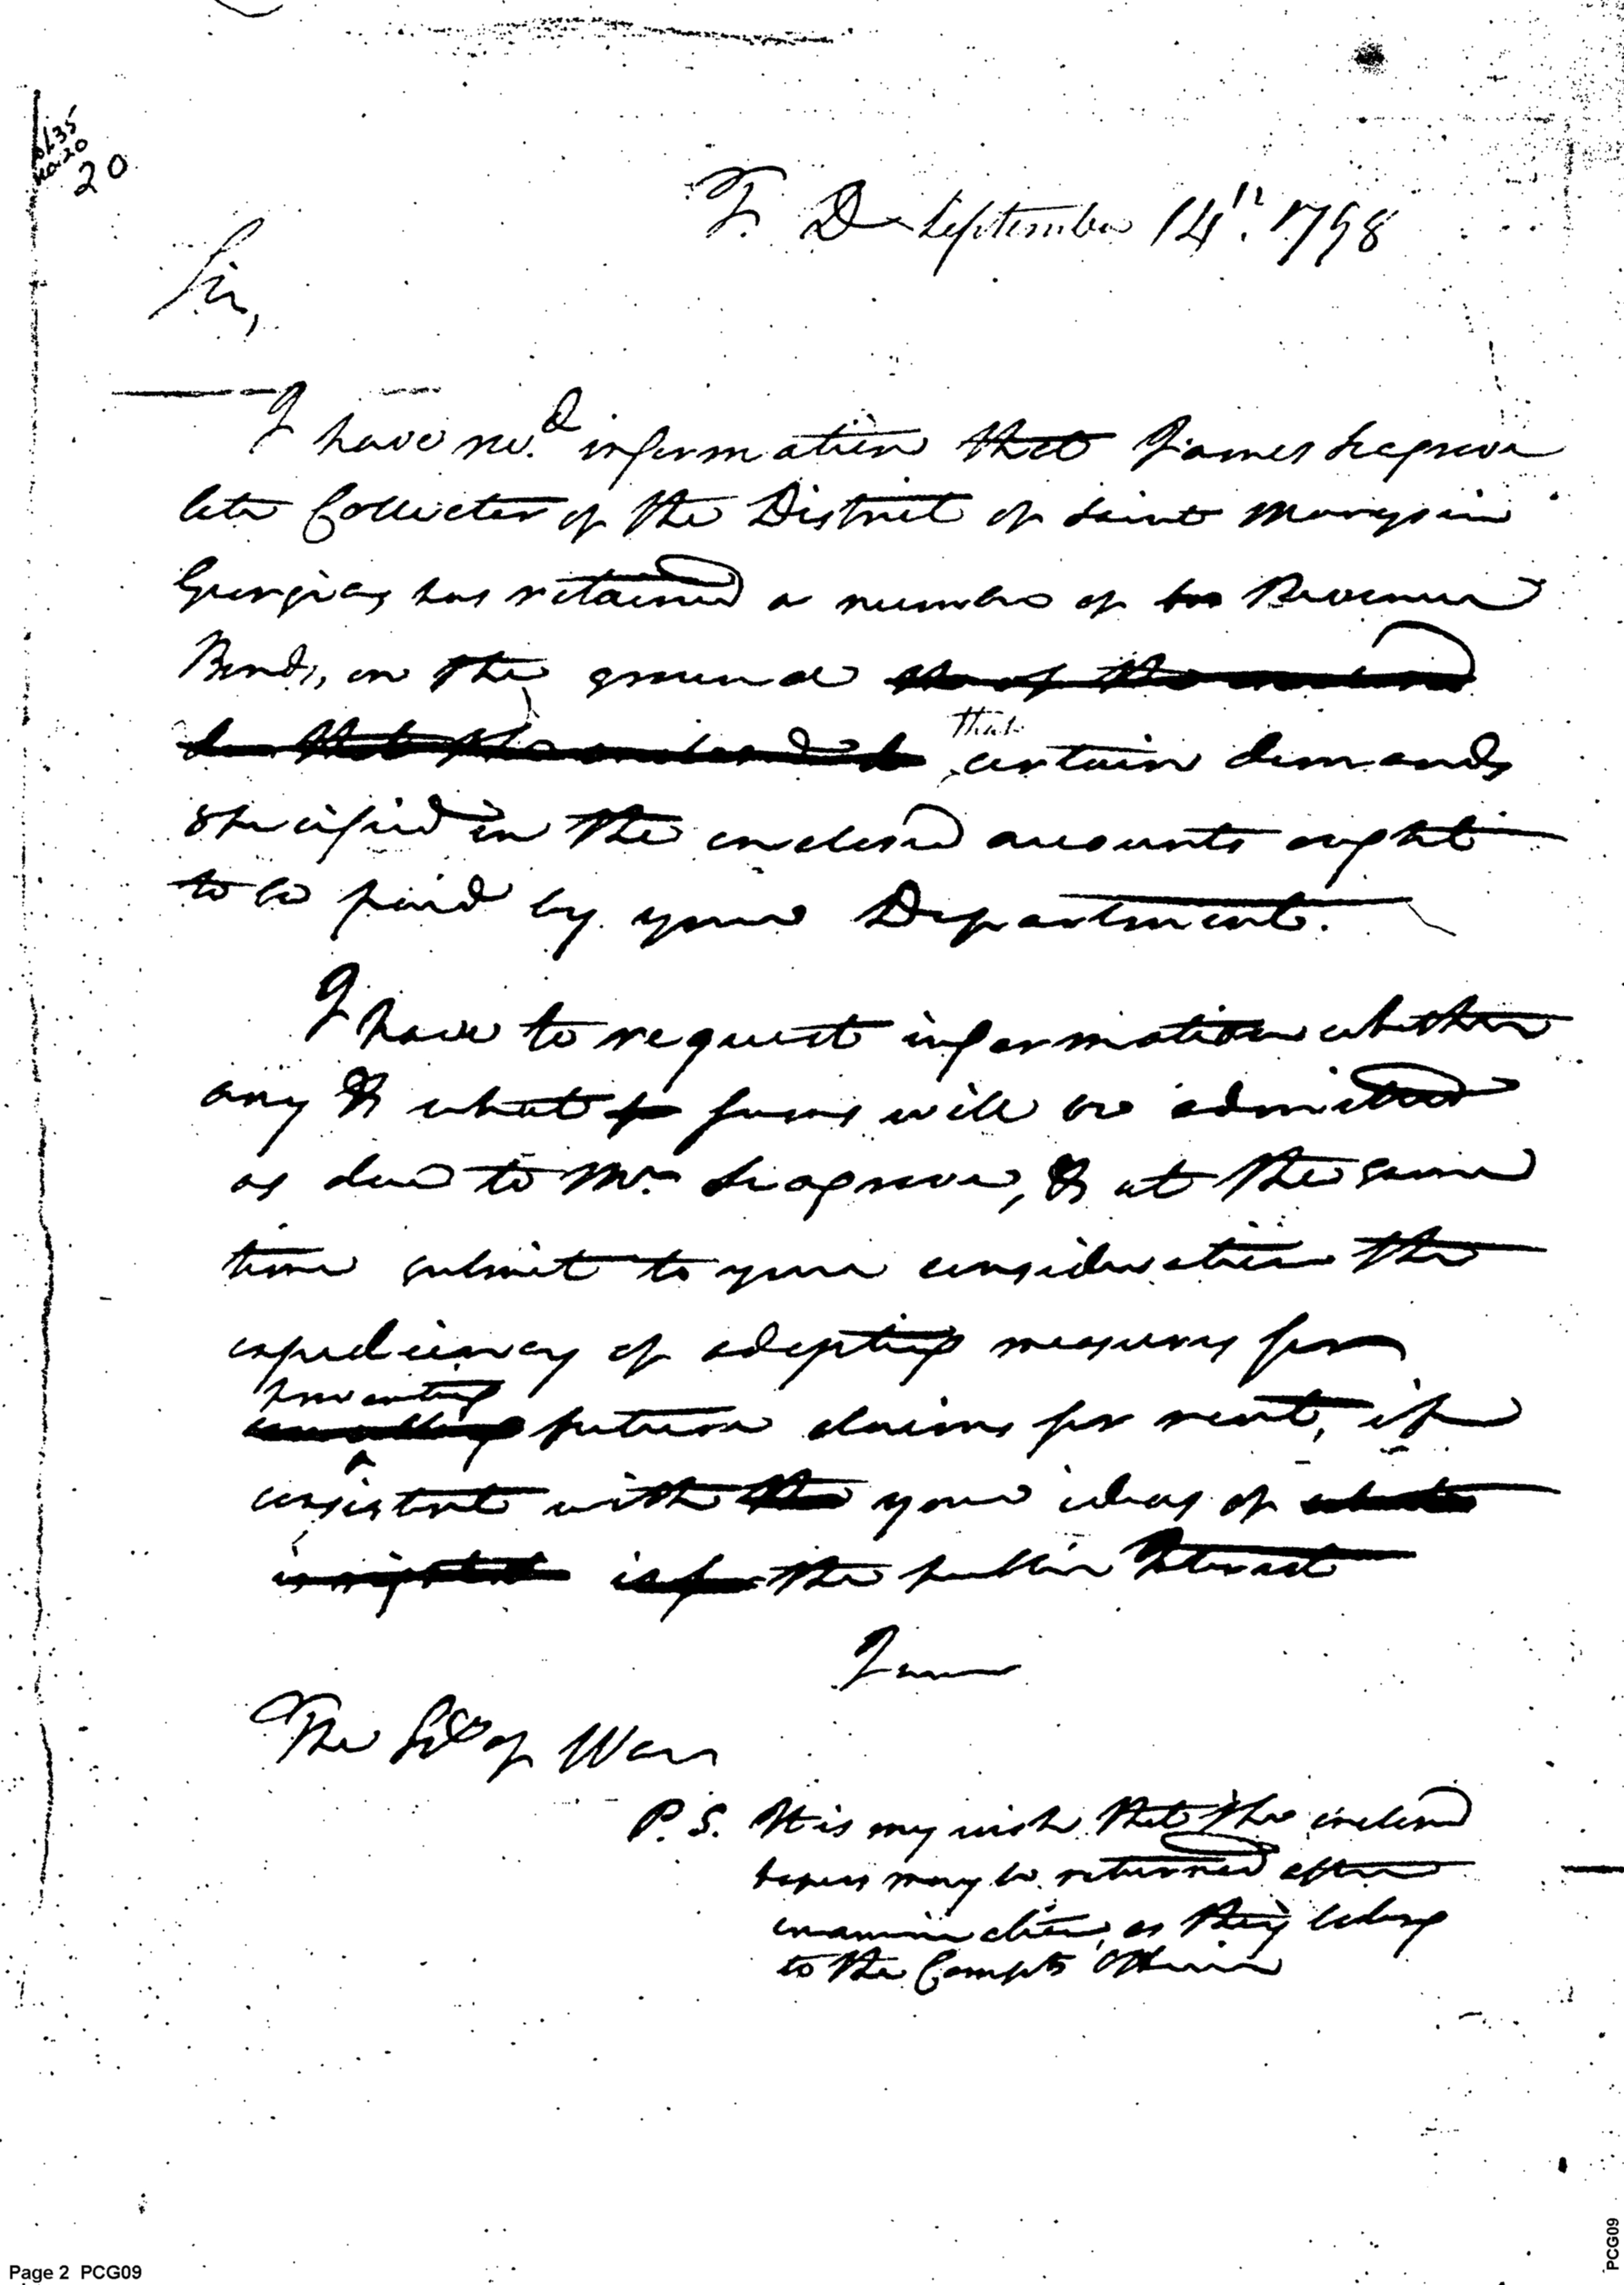 20
T. D September 14th. 1798
Sir,
I have recd. information that James Seagrove
late Collector of the District of Saint Marys in
Georgia, has retained a number of Revenue
Bonds, on the ground
that certain demands
specified in the enclosed accounts ought
to be paid by your Department.
I have to request information whether
any & what sums will be admitted
as due to Mr. Seagrove, & at the same
time submit to your consideration the
expediency of adopting measures for
preventing
future claims for rent, if
consistent with your ideas of
the public Interest
I am
The Secy of War
P.S. It is my wish that the inclosed
papers may be returned after
examination, as they belong
to the Compts Office
Page 2 PCG09
PCG09